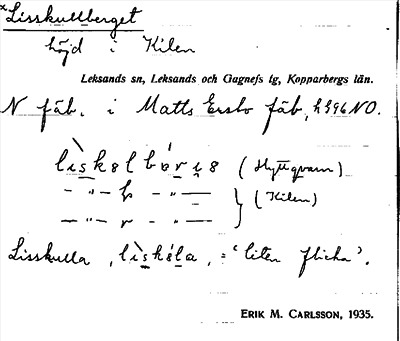 *Lisskullberget
höjd i Kilen
Leksands sn, Leksands och Gagnefs tg, Kopparbergs län.
N fäb. i Matts Ersbo fäb,
(Hyttqvarn)
— " — — " — } (Kilen)
— " — — " —
Lisskulla, = 'liten flicka'.
ERIK M. CARLSSON, 1935.